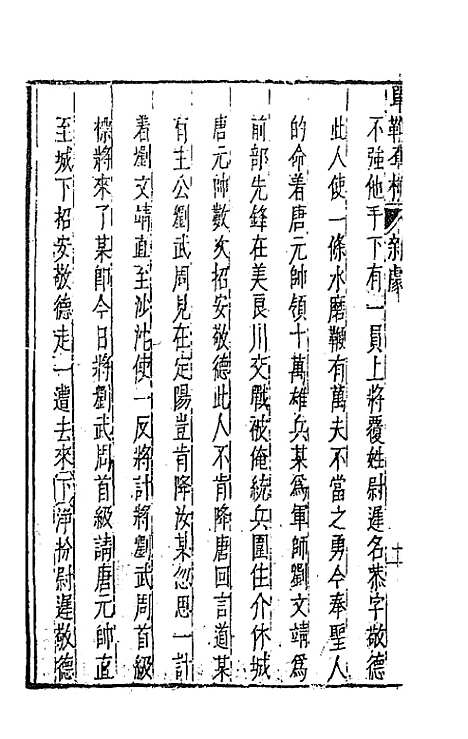 單鞭奪槊 雜劇 十一
不強他手下有一員上將覆姓尉遲名恭字敬德
此人使一條水磨鞭有萬夫不當之勇今奉聖人
的命着唐元帥領十萬雄兵某爲軍師劉文靖爲
前部先鋒在美良川交戰被俺統兵圍住介休城
唐元帥數次招安敬德此人不肯降唐回言道某
有主公劉武周見在定陽豈肯降汝某忽思一計
着劉文靖直至沙沱使一反將計將劉武周首級
標將來了某卽今日將劉武周首級請唐元帥直
至城下招安敬德走一遭去來下淨扮尉遲敬德